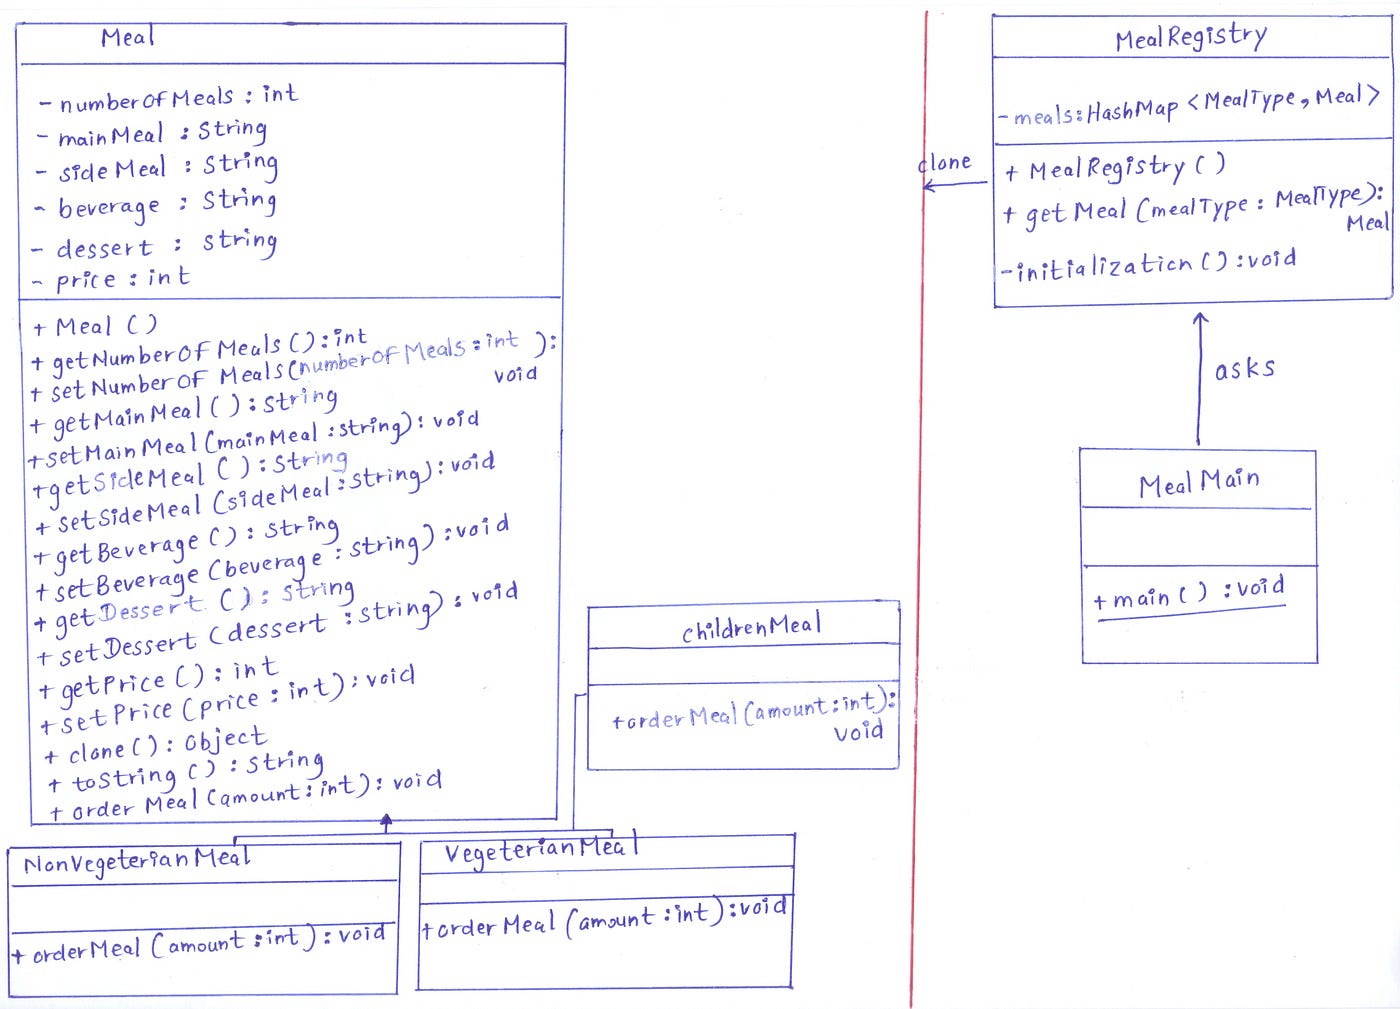 Meal
- numberOfMeals : int
- mainMeal : String
- sideMeal : String
- beverage : String
- dessert : String
- price : int
+ Meal ()
+ getNumberOf Meals () : int
+ setNumberOF Meals (numberOf Meals : int ) :
void
+ getMainMeal ( ) : String
+ setMainMeal (mainMeal : String) : void
+ getSideMeal ( ) : String
+ setSideMeal (sideMeal : String) : void
+ getBeverage () : String
+ setBeverage (beverage : String) : void
+ getDessert () : String
+ setDessert (dessert : String) : void
+ getPrice () : int
+ setPrice (price : int) : void
+ clone () : Object
+ toString () : String
+ order Meal (amount : int) : void
NonVegeterianMeal
+ orderMeal (amount : int) : void
VegeterianMeal
+ orderMeal (amount : int) : void
childrenMeal
+orderMeal (amount : int) :
void
clone
MealRegistry
- meals : HashMap <MealType, Meal>
+ MealRegistry ( )
+ get Meal (mealType : MealType) :
Meal
- initialization ( ) : void
asks
Meal Main
+ main ( ) : void